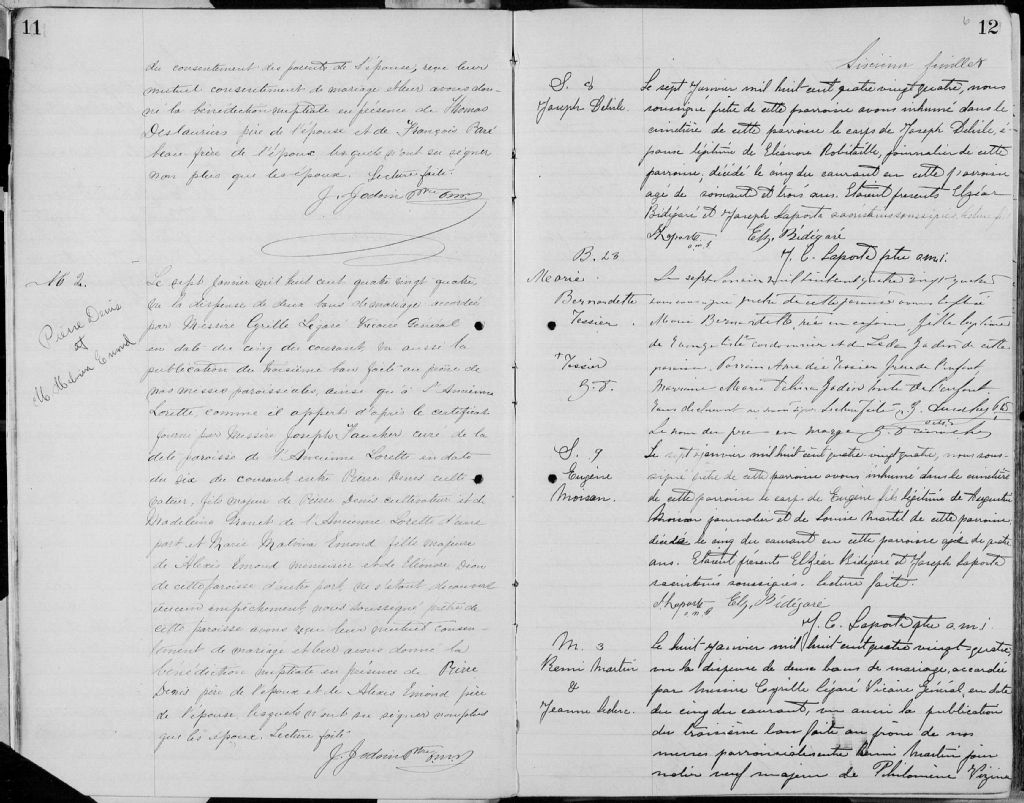 11
du consentement des parents de l'épouse, reçu leur
mutuel consentement de mariage et leur avons don-
né la bénédiction nuptiale en présence de Thomas
Deslauriers père de l'épouse et de François Paré
beau-frère de l'époux lesquels n'ont su signer
non plus que les époux. Lecture faite.
J. Jodoin Ptre
M 2.
Pierre Denis
et
M. Malvina Emond
Le sept Janvier mil huit cent quatre vingt quatre
Vu la dispense de deux bans de mariage accordée
par Messire Cyrille Légaré Vicaire Général
en date du cinq du courant vu aussi la
publication du troisième ban faite au prône de
nos messes paroissiales, ainsi qu'à l'Ancienne
Lorette comme il appert d'après le certificat
fourni par Messire Joseph Faucher curé de la
dite paroisse de l'Ancienne Lorette en date
du six du courant entre Pierre Denis culti-
vateur, fils majeur de Pierre Denis cultivateur et de
Madeleine Drolet de l'Ancienne Lorette d'une
part et Marie Malvina Emond fille majeure
de Alexis Emond menuisier et de Eléonore Dion
de cette paroisse d'autre part ne s'étant découvert
aucun empêchement nous soussigné prêtre de
cette paroisse avons reçu leur mutuel consen-
tement de mariage et leur avons donné la
bénédiction nuptiale en présence de Pierre
Denis père de l'époux et de Alexis Emond père
de l'épouse lesquels n'ont su signer non plus
que les époux. Lecture faite
J. Jodoin Ptre
6
12
Sixième feuillet
S. 8
Joseph Delisle
Le sept Janvier mil huit cent quatre vingt quatre, nous
soussigné prêtre de cette parroisse avons inhumé dans le
cimetière de cette parroisse le corps de Joseph Delisle, é-
poux légitime de Eléonore Robitaille, journalier de cette
parroisse, décédé le cinq du courant en cette parroisse
agé de soixante et trois ans. Etaient présents Elzéar
Bédégaré et Joseph Laporte sacristains soussignés, lecture
Eliz. Bédégaré
J. C. Laporte ptre o.m.i.
B. 23
Marie
Bernadette
Tessier.
+ Tessier
Le sept Janvier mil huit cent quatre vingt quatre
nous soussigné prêtre de cette paroisse avons baptisé
Marie Bernadette, née fille légitime
de cordonnier et de Léda Jodoin de cette
paroisse. Parrain Amédée Tessier
Marraine Marie Jodoin tante de l'enfant
Lecture faite
Le nom du père en marge
S. 9
Eugène
Moisan.
Le sept Janvier mil huit cent quatre vingt quatre, nous sous-
signé prêtre de cette parroisse avons inhumé dans le cimetière
de cette parroisse le corps de Eugène fils légitime de Augustin
Moisan journalier et de Louise Martel de cette parroisse,
décédé le cinq du courant en cette parroisse agé de
ans. Etaient présents Elzéar Bédégaré et Joseph Laporte
sacristains soussignés. lecture faite.
Elz. Bédégaré
J. C. Laporte ptre o.m.i.
M. 3
Remi Martin
&
Jeanne Leclerc.
Le huit Janvier mil huit cent quatre vingt quatre,
vu la dispense de deux bans de mariage, accordée
par messire Cyrille Légaré Vicaire Général, en date
du cinq du courant, vu aussi la publication
du troisième ban faite au prône de nos
messes parroissiales entre Remi Martin jour-
nalier veuf majeur de Philomène Vézina